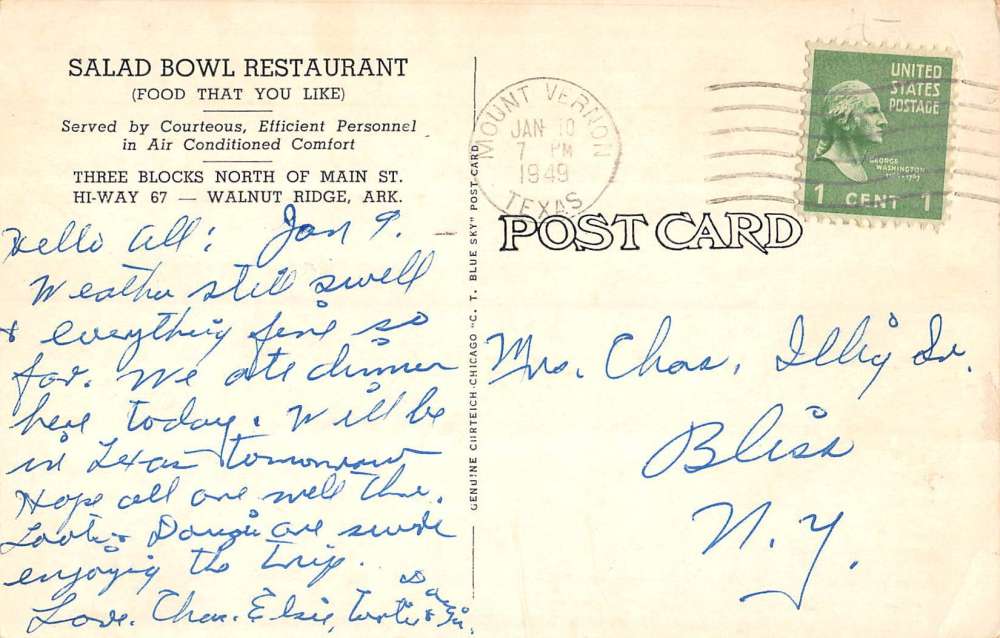 SALAD BOWL RESTAURANT
(FOOD THAT YOU LIKE)
Served by Courteous, Efficient Personnel
in Air Conditioned Comfort
THREE BLOCKS NORTH OF MAIN ST.
HI-WAY 67 — WALNUT RIDGE, ARK.
Hello All: Jan 9.
Weather still swell
& everything fine so
far. We ate dinner
here today. Will be
in Texas tomorrow
Hope all are well there.
are sure
enjoying the trip.
Love. Chas. Elsie,
GENUINE CURTEICH-CHICAGO "C. T. BLUE SKY" POST CARD
MOUNT VERNON
JAN 10
7 PM
1949
TEXAS
UNITED
STATES
POSTAGE
GEORGE
WASHINGTON
1 CENT 1
POST CARD
Mrs. Chas. Illig Sr.
Bliss
N.Y.